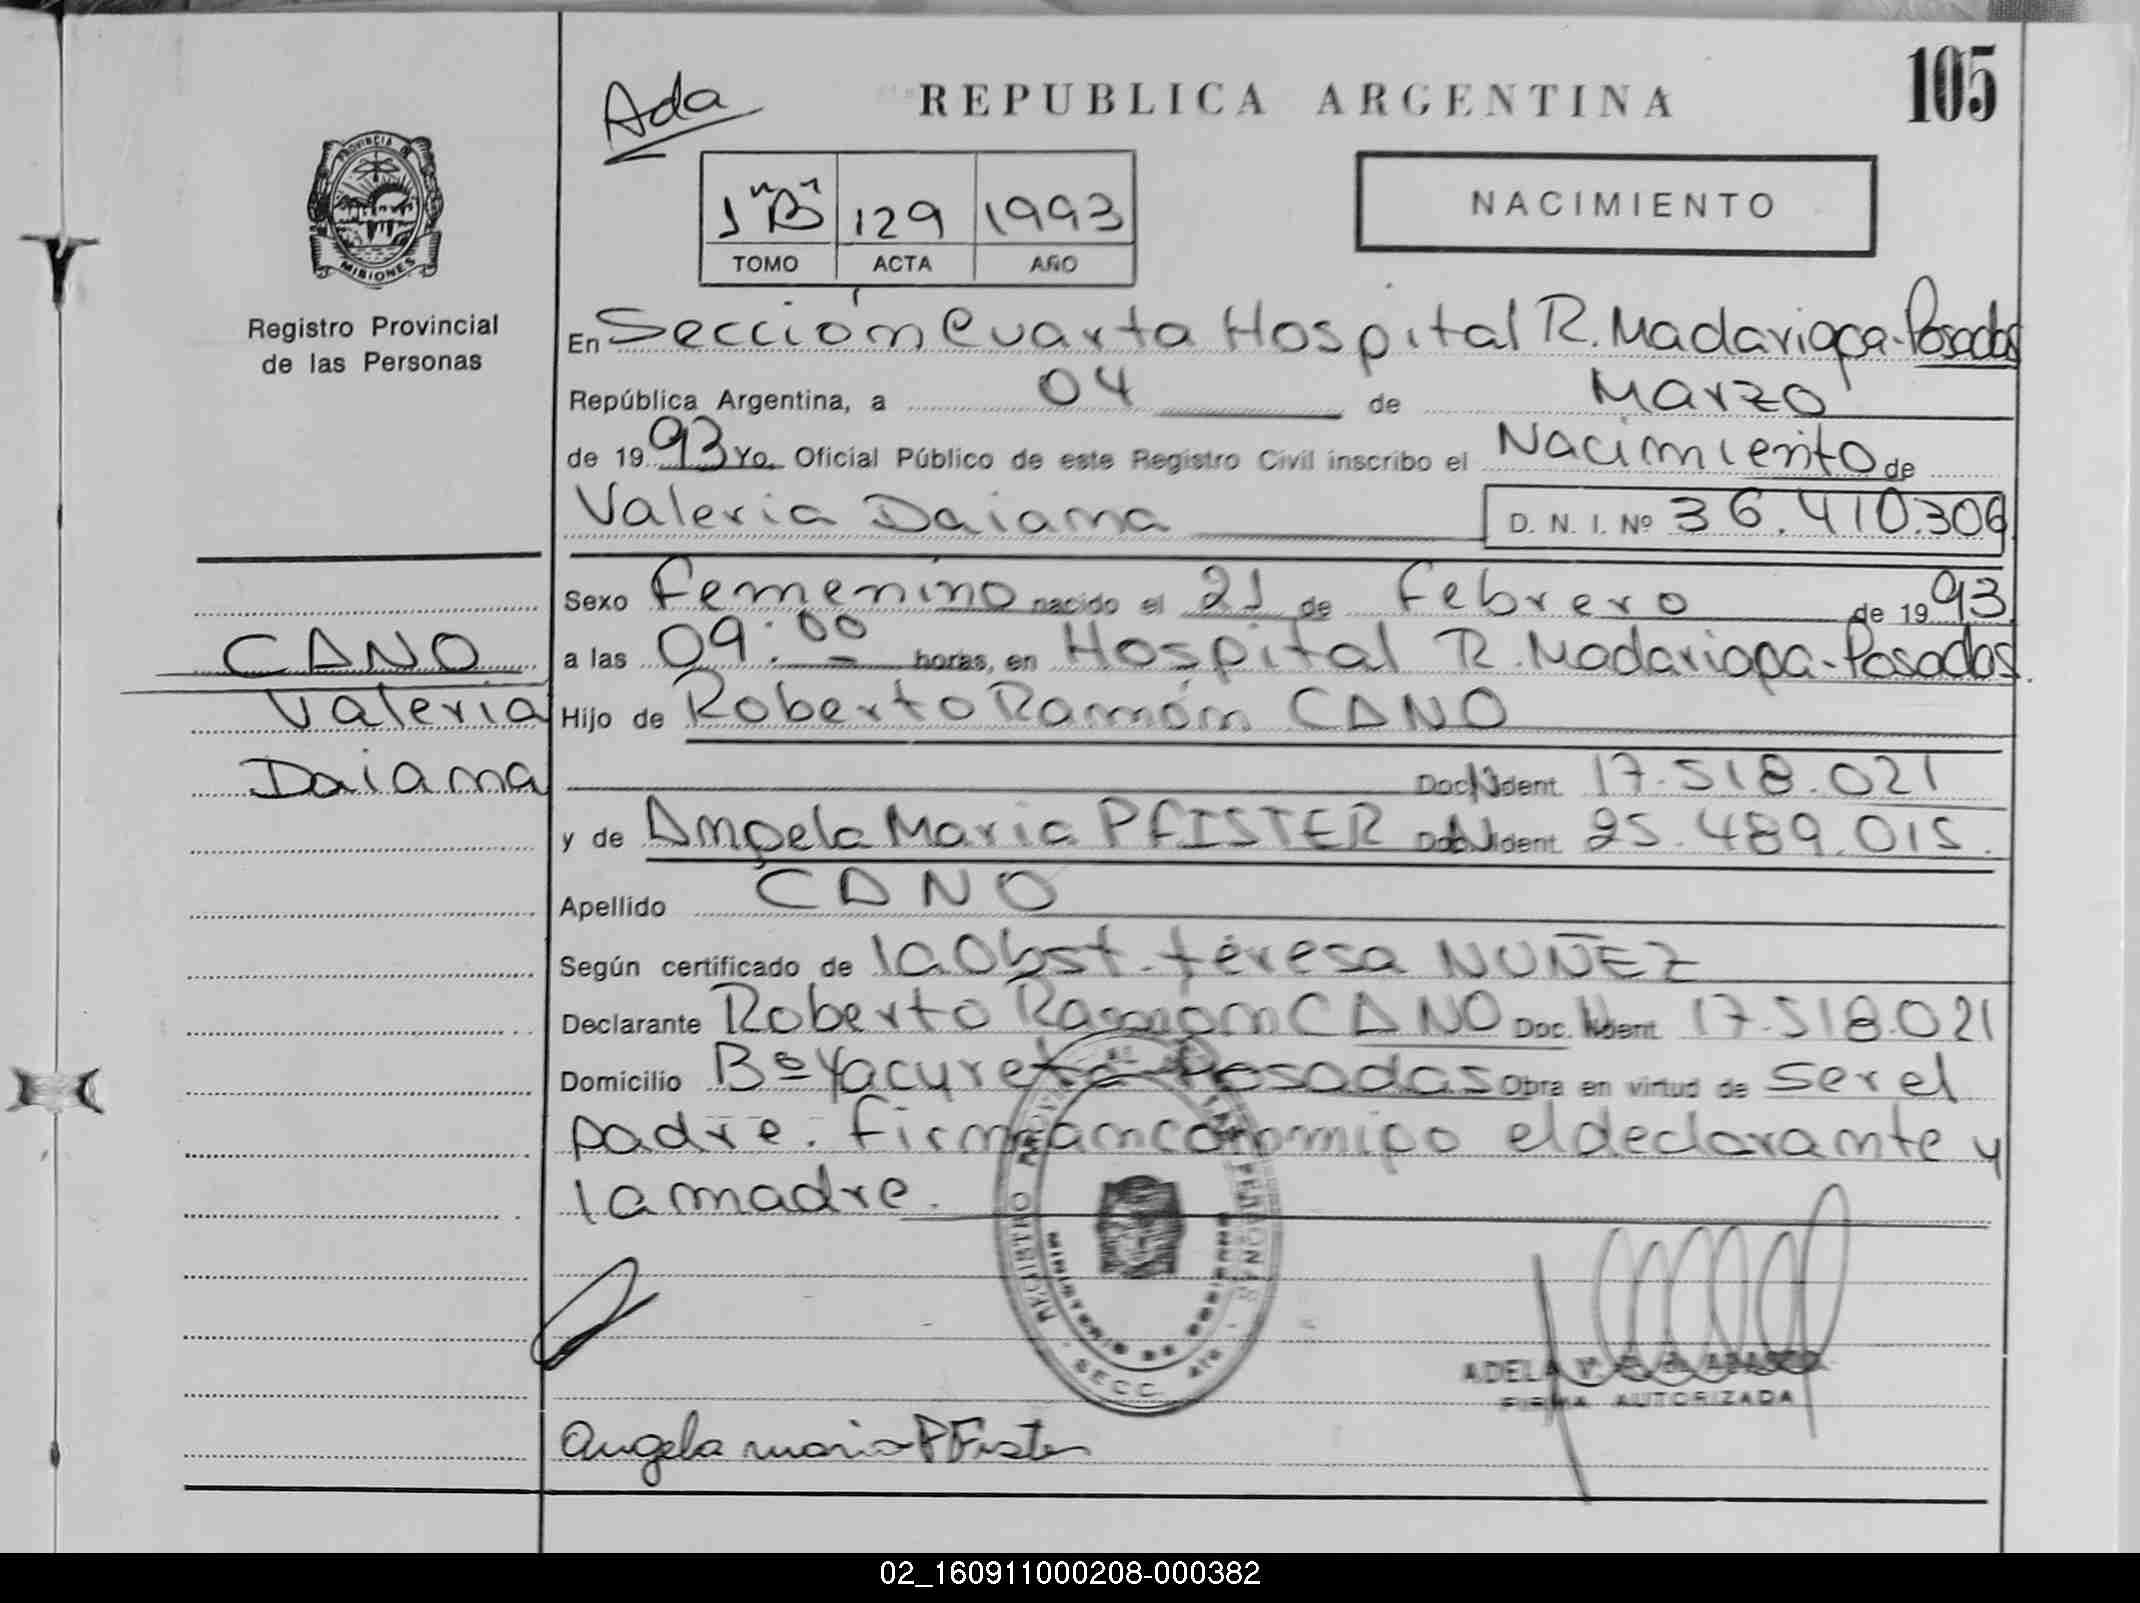 105
Ada
REPUBLICA ARGENTINA
PROVINCIA DE
MISIONES
1 "B" 129 1993
TOMO ACTA AÑO
NACIMIENTO
Registro Provincial
de las Personas
En Sección Cuarta Hospital R. Madariaga-Posadas
República Argentina, a 04 de Marzo
de 1993 Yo, Oficial Público de este Registro Civil inscribo el Nacimiento de
Valeria Daiana D. N. I. Nº 36.410.306
Sexo Femenino nacido el 21 de Febrero de 1993
CANO
a las 09:00 horas, en Hospital R. Madariaga-Posadas.
Valeria
Hijo de Roberto Ramón CANO
Daiana
Doc. Ident. 17.518.021
y de Angela Maria PFISTER Doc. Ident. 25.489.015.
Apellido CANO
Según certificado de la Obst. Teresa NUÑEZ
Declarante Roberto Ramón CANO Doc. Ident. 17.518.021
Domicilio Bº Yacyreta-Posadas Obra en virtud de ser el
padre. Firman conmigo el declarante y
la madre.
REGISTRO PROVINCIAL DE LAS PERSONAS
MINISTERIO DE GOBIERNO
SECC. 4ta.
ADELA V.
FIRMA AUTORIZADA
Angela maria PFister
02_160911000208-000382